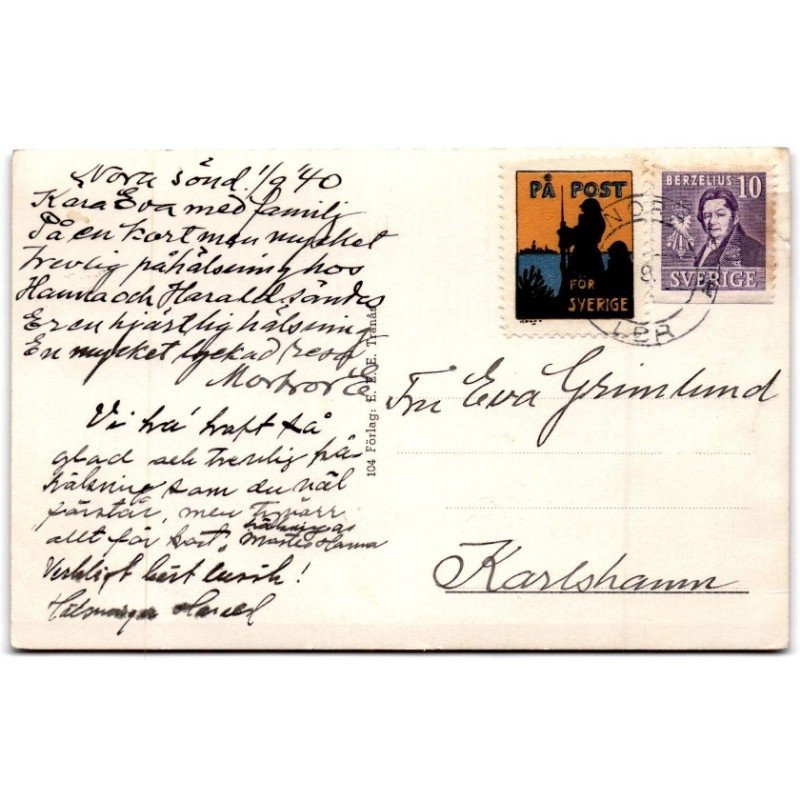 Nora sönd. 1/9 '40
Kära Eva med familj
På en kort men mycket
trevlig påhälsning hos
Hanna och Harald, sändes
Er en hjärtlig hälsning
En mycket lyckad resa
Morbror E
Vi ha' haft så
glad och trevlig på-
hälsning som du väl
förstår, men tyvärr
allt för kort. Hälsningar
Moster Hanna
Verkligt kärt besök!
Hälsningar Harald
104 Förlag: E. E. E. Tranås
PÅ POST
FÖR
SVERIGE
BERZELIUS 10
SVERIGE
NOR
LBR
Fru Eva Grimlund
Karlshamn